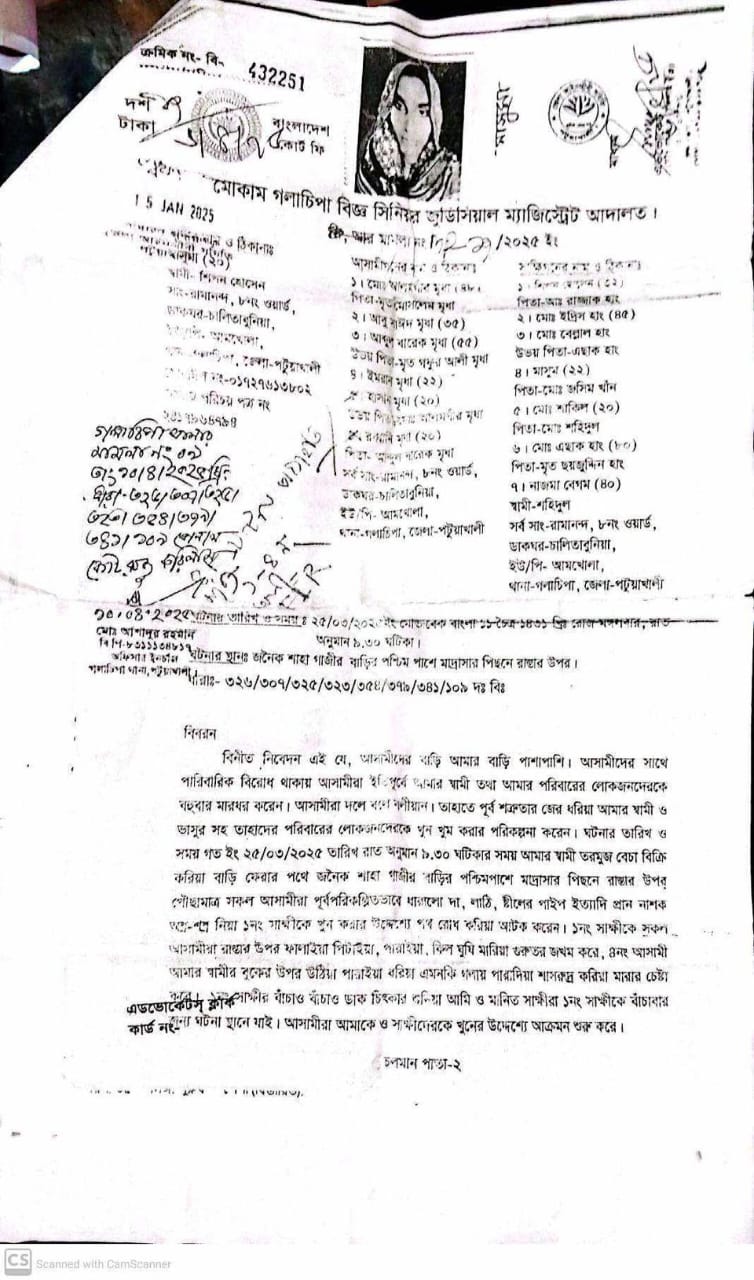 ক্রমিক নং- বি- 432251
দশ
টাকা
বাংলাদেশ
কোর্ট ফি
মোকাম গলাচিপা বিজ্ঞ সিনিয়র জুডিসিয়াল ম্যাজিস্ট্রেট আদালত।
15 JAN 2025
/২০২৫ ইং
স্বামী- শিপন হোসেন
সাং-রামানন্দ, ৮নং ওয়ার্ড,
ডাকঘর-চালিতাবুনিয়া,
আমখোলা,
জেলা-পটুয়াখালী
নং-০১৭২৭৬১৩৮০২
পরিচয় পত্র নং
আসামীগনের নাম ও ঠিকানাঃ
পিতা-মৃত মোসলেম মৃধা
২। আবু সাঈদ মৃধা (৩৫)
৩। আব্দুল বারেক মৃধা (৫৫)
উভয় পিতা-মৃত গফুর আলী মৃধা
৪। ইমরান মৃধা (২২)
হাসান মৃধা (২০)
মৃধা (২০)
পিতা- আব্দুল বারেক মৃধা
সর্ব সাং-রামানন্দ, ৮নং ওয়ার্ড,
ডাকঘর-চালিতাবুনিয়া,
ইউ/পি- আমখোলা,
থানা-গলাচিপা, জেলা-পটুয়াখালী
পিতা-মৃত রাজ্জাক হাং
২। মোঃ ইদ্রিস হাং (৪৫)
৩। মোঃ বেল্লাল হাং
উভয় পিতা-এছাক হাং
৪। মাসুম (২২)
পিতা-মোঃ জসিম খাঁন
৫। মোঃ শাকিল (২০)
পিতা-মোঃ শহিদুল
৬। মোঃ এছাক হাং (৮০)
পিতা-মৃত ছয়জুদ্দিন হাং
৭। নাজমা বেগম (৪০)
স্বামী-শহিদুল
সর্ব সাং-রামানন্দ, ৮নং ওয়ার্ড,
ডাকঘর-চালিতাবুনিয়া,
ইউ/পি- আমখোলা,
থানা-গলাচিপা, জেলা-পটুয়াখালী
গলাচিপা থানার
মামলা নং ০৯
তাং ১০/৪/২০২৫
ধারা-৩২৬/৩০৭/৩২৫/
৩২৩/৩৫৪/৩৭৯/
৩৪১/১০৯
FIR
১০.০৪.২০২৫
মোঃ আশাদুর রহমান
বিপি-৮৩১১১৩৪৮১৭
অফিসার ইনচার্জ
গলাচিপা থানা, পটুয়াখালী।
ঘটনার তারিখ ও সময় ঃ ২৫/০৩/২০২৫ ইং মোতাবেক বাংলা ১১ চৈত্র ১৪৩১ খ্রিঃ রোজ মঙ্গলবার, রাত
অনুমান ৯.৩০ ঘটিকা।
ঘটনার স্থানঃ জনৈক শাহা গাজীর বাড়ির পশ্চিম পাশে মাদ্রাসার পিছনে রাস্তার উপর।
ধারাঃ- ৩২৬/৩০৭/৩২৫/৩২৩/৩৫৪/৩৭৯/৩৪১/১০৯ দঃ বিঃ
বিবরন
বিনীত নিবেদন এই যে, আসামীদের বাড়ি আমার বাড়ি পাশাপাশি। আসামীদের সাথে
পারিবারিক বিরোধ থাকায় আসামীরা ইতিপূর্বে আমার স্বামী তথা আমার পরিবারের লোকজনদেরকে
বহুবার মারধর করেন। আসামীরা দলে বলে বলীয়ান। তাহাতে পূর্ব শত্রুতার জের ধরিয়া আমার স্বামী ও
ভাসুর সহ তাহাদের পরিবারের লোকজনদেরকে খুন গুম করার পরিকল্পনা করেন। ঘটনার তারিখ ও
সময় গত ইং ২৫/০৩/২০২৫ তারিখ রাত অনুমান ৯.৩০ ঘটিকার সময় আমার স্বামী তরমুজ বেচা বিক্রি
করিয়া বাড়ি ফেরার পথে জনৈক শাহা গাজীর বাড়ির পশ্চিমপাশে মাদ্রাসার পিছনে রাস্তার উপর
পৌছামাত্র সকল আসামীরা পূর্বপরিকল্পিতভাবে ধারালো দা, লাঠি, ষ্টীলের পাইপ ইত্যাদি প্রান নাশক
অস্ত্র-শস্ত্র নিয়া ১নং সাক্ষীকে খুন করার উদ্দেশ্যে পথ রোধ করিয়া আটক করেন। ১নং সাক্ষীকে সকল
আসামীরা রাস্তার উপর ফালাইয়া পিটাইয়া, পারাইয়া, কিল ঘুষি মারিয়া গুরুতর জখম করে, ৪নং আসামী
আমার স্বামীর বুকের উপর উঠিয়া পারাইয়া ধরিয়া এমনকি গলায় পারাদিয়া শাসরুদ্ধ করিয়া মারার চেষ্টা
করে। ১নং সাক্ষীর বাঁচাও বাঁচাও ডাক চিৎকার শুনিয়া আমি ও মানিত সাক্ষীরা ১নং সাক্ষীকে বাঁচাবার
জন্য ঘটনা স্থানে যাই। আসামীরা আমাকে ও সাক্ষীদেরকে খুনের উদ্দেশ্যে আক্রমন শুরু করে।
এডভোকেটস্ ক্লার্ক
কার্ড নং
চলমান পাতা-২
CS Scanned with CamScanner